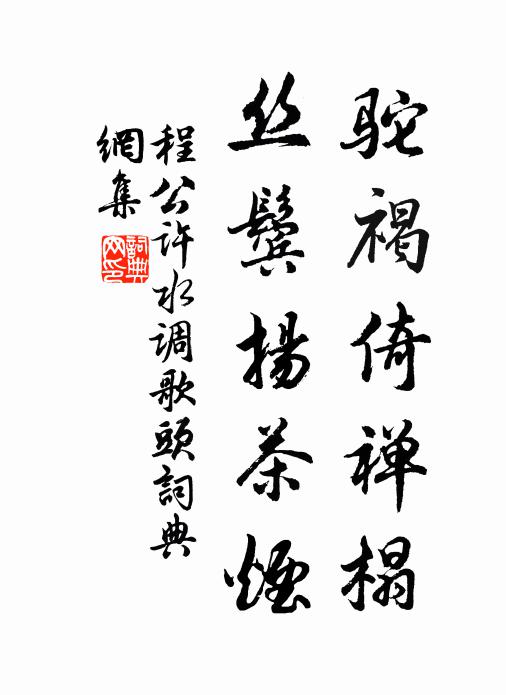 驼褐倚禅榻
丝鬓扬茶煙
程公许水调歌頭詞典
網集
詞典網印